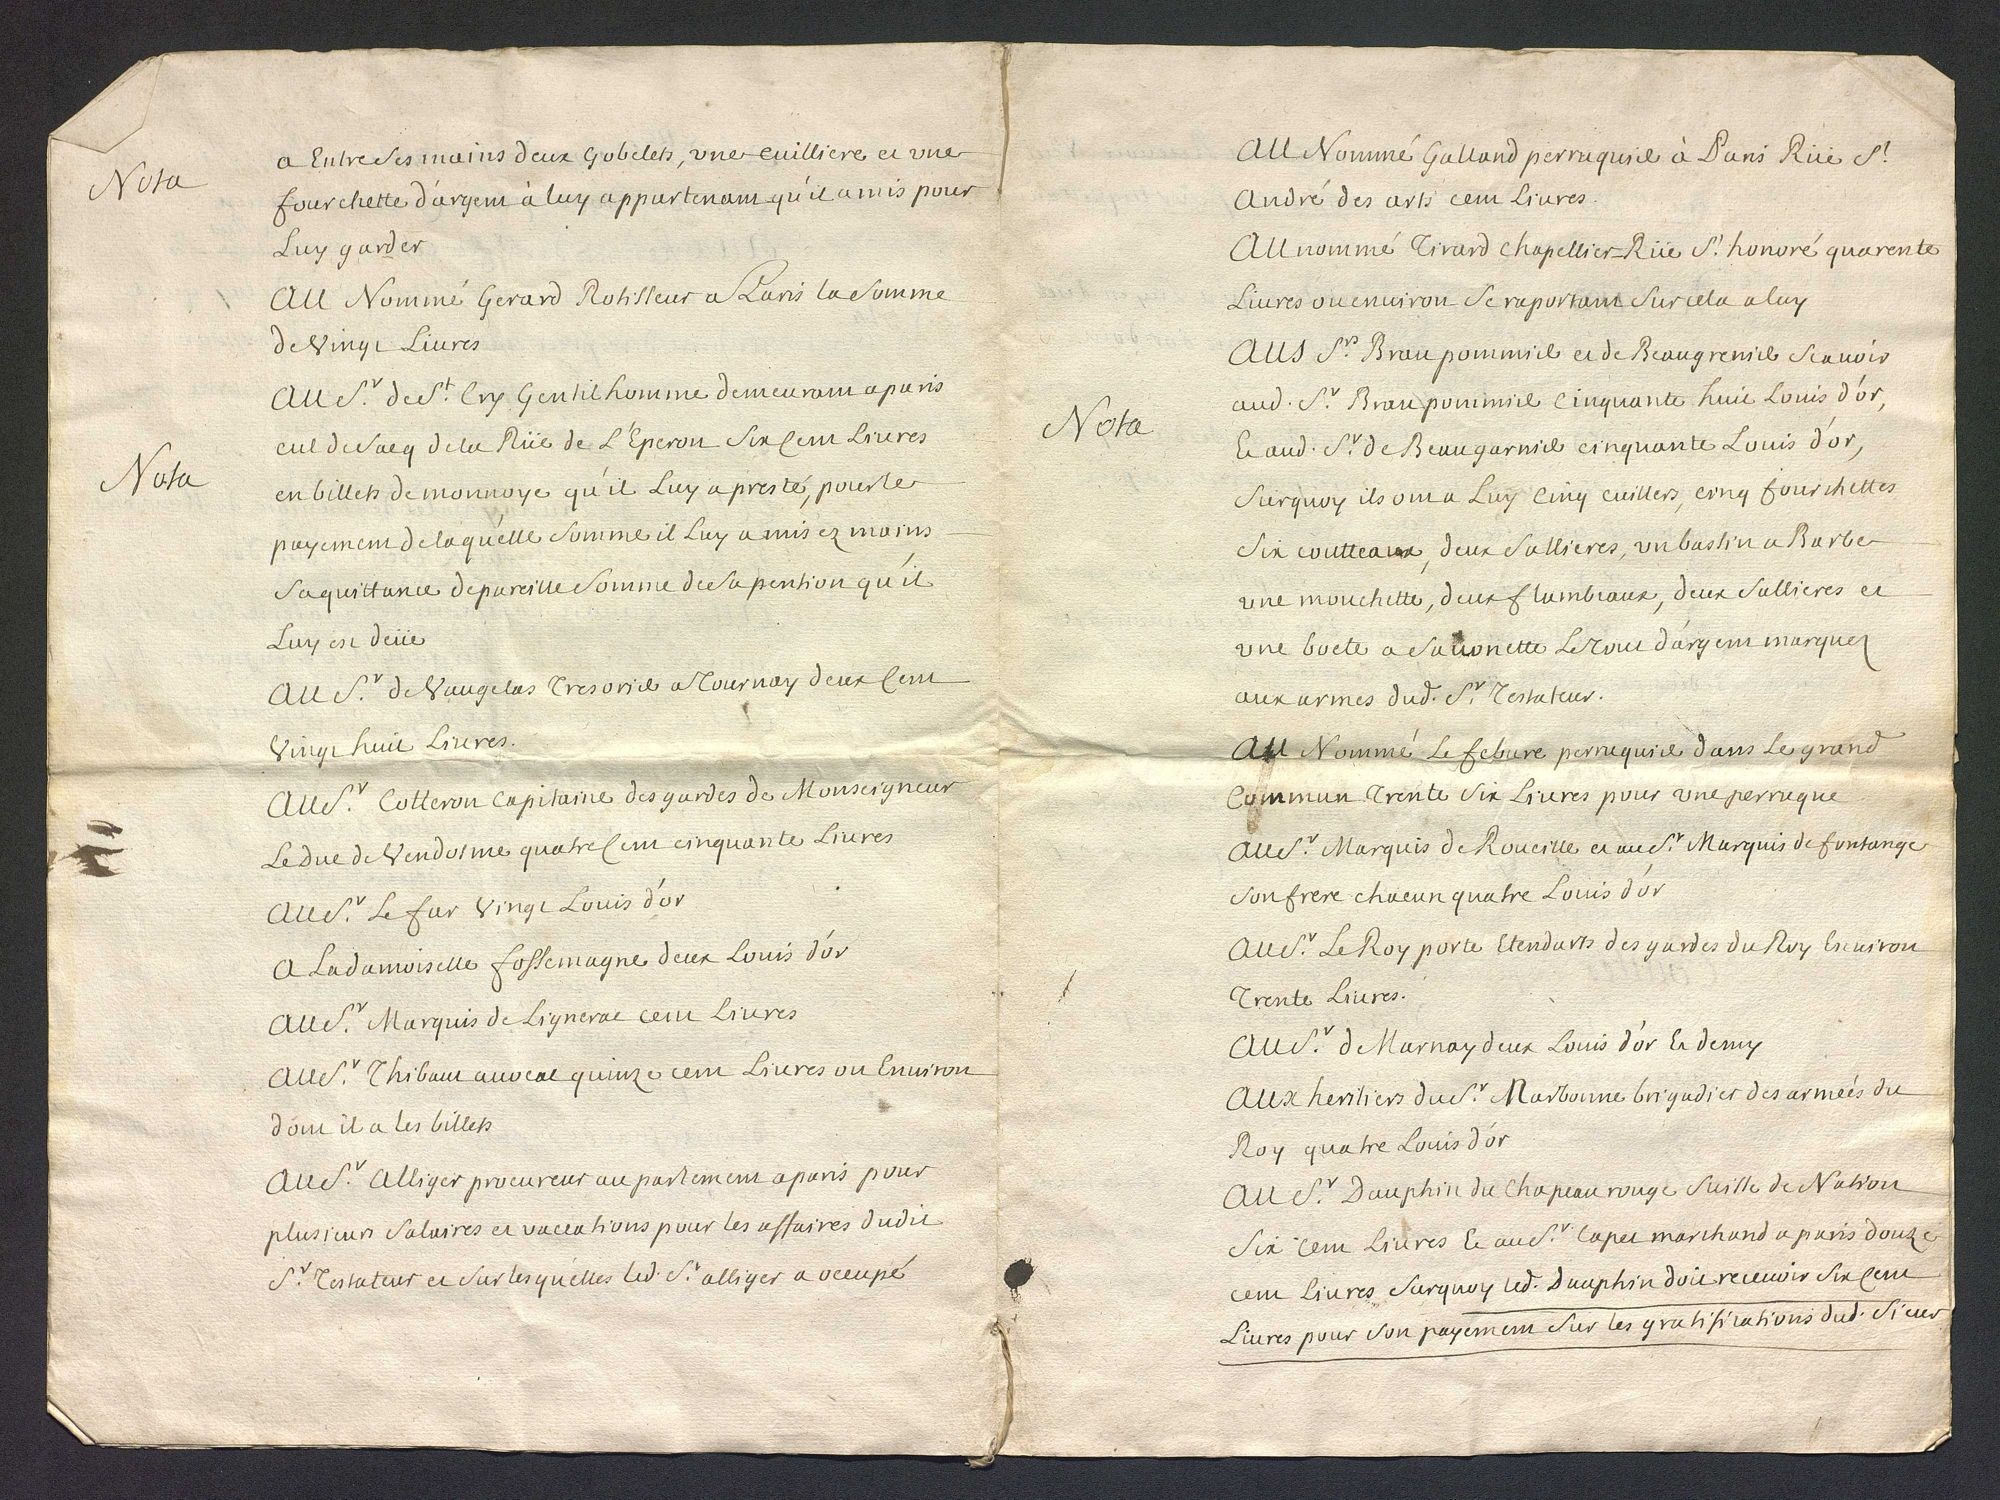 Nota
a Entre ses mains deux gobelets, vne cuilliere et vne
fourchette d'argent à luy appartenant qu'il a mis pour
Luy garder
Au Nommé Gerard Rotisseur a Paris la somme
de Vingt Liures
Au Sr. de St Cry Gentilhomme demeurant a paris
cul de sacq de la Rüe de L'Eperon six Cent Liures
Nota
en billets de monnoye qu'il Luy a presté, pour le
payement de laquelle somme il Luy a mis ez mains
sa quittance de pareille somme de sa pention qu'il
Luy est deüe
Au Sr. de Vaugelas Tresorier a Tournay deux Cent
Vingt huit Liures.
Au Sr. Cotteron Capitaine des gardes de Monseigneur
Le Duc de Vendosme quatre Cent cinquante Liures
Au Sr. Le far Vingt Louis d'or
A La damoiselle fossemagne deux Louis d'or
Au Sr. Marquis de Lignerac cent Liures
Au Sr. Thibaut auocat quinze cent Liures ou Enuiron
dont il a les billets
Au Sr. Alliger procureur au parlement a paris pour
plusieurs salaires et vaccations pour les affaires dudit
Sr. Testateur et sur lesquelles led. Sr. alliger a occupé
Au Nommé Galland perruquier à Paris Rüe St.
André des arts cent Liures.
Au nommé Tirard Chapellier Rüe St. honoré quarente
Liures ou enuiron se raportant sur cela a luy
Aus Srs. Braupommier et de Beaugrenier scauoir
aud. Sr. Braupommier Cinquante huit Louis d'or,
Nota
Et aud. Sr. de Beaugarnier cinquante Louis d'or,
surquoy ils ont a Luy Cinq cuillers, cinq fourchettes
six coutteaux, deux sallieres, vn bassin a Barbe
vne mouchette, deux flambeaux, deux sallieres et
vne boete a sauonette Le tout d'argent marquez
aux armes dud. Sr. Testateur.
Au Nommé Le febure perruquier dans Le grand
Commun Trente six Liures pour vne perruque
Au Sr. Marquis de Roueille et au Sr. Marquis de fontange
son frere chacun quatre Louis d'or
Au Sr. Le Roy porte Etendarts des gardes du Roy Enuiron
Trente Liures.
Au Sr. de Marnay deux Louis d'or Et demy
Aux heritiers du Sr. Narbonne brigadier des armeés du
Roy quatre Louis d'or
Au Sr. Dauphin du Chapeau rouge suitte de Nation
six cent Liures Et au Sr. Capet marchand a paris douze
cent Liures surquoy led. Dauphin doit receuoir six Cent
Liures pour son payement sur les gratifications dud. Sieur